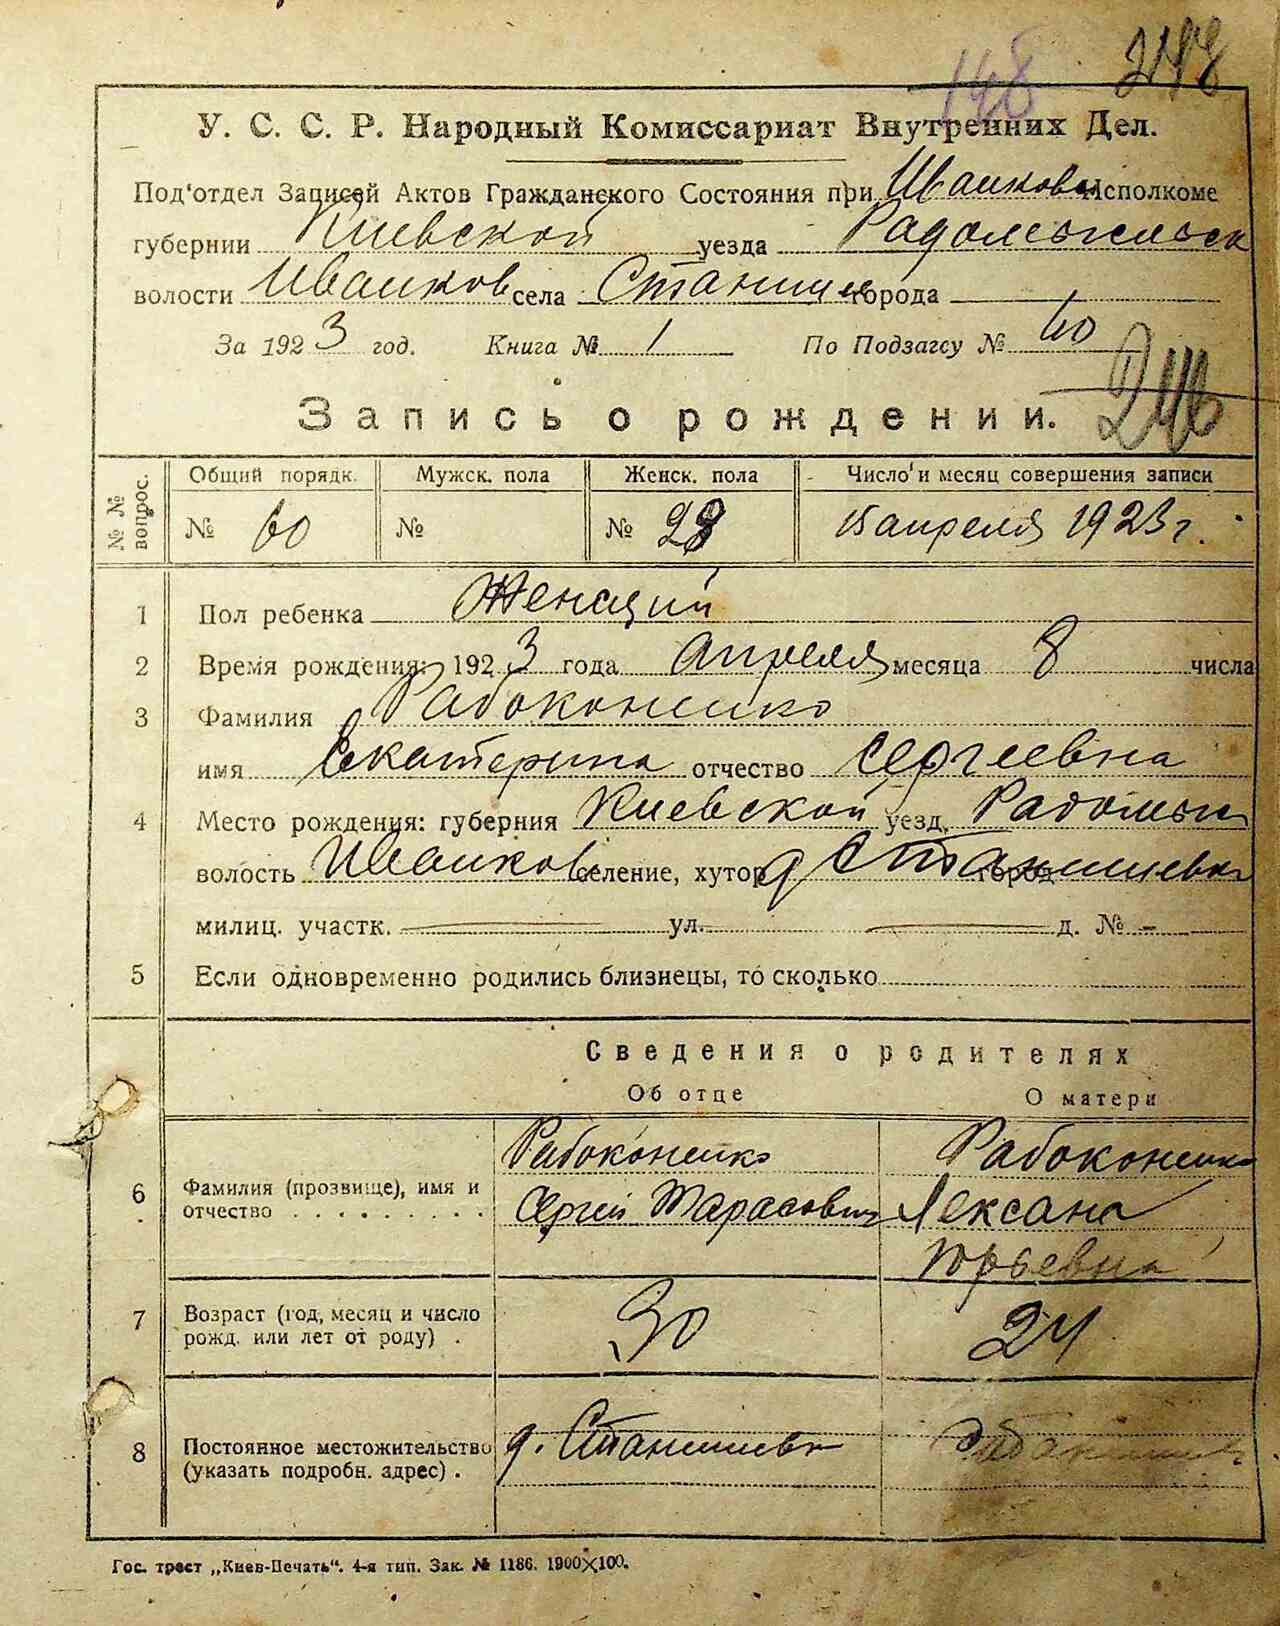 148 248
У. С. С. Р. Народный Комиссариат Внутренних Дел.
Под'отдел Записей Актов Гражданского Состояния при Иванков Исполкоме
губернии Киевской уезда Радомысльск
волости Иванков села Станиш города
За 1923 год. Книга № 1 По Подзагсу № 60
Запись о рождении. 246
№ № вопрос. Общий порядк. Мужск. пола Женск. пола Число и месяц совершения записи
№ 60 № № 28 15 апреля 1923 г.
1 Пол ребенка Женский
2 Время рождения: 1923 года апреля месяца 8 числа
3 Фамилия Рабоконенко
имя Екатерина отчество Сергеевна
4 Место рождения: губерния Киевской уезд. Радомысл
волость Иванков селение, хутор д Станишевка город
милиц. участк. ул. д. № -
5 Если одновременно родились близнецы, то сколько
Сведения о родителях
Об отце О матери
Рабоконенко Рабоконенко
6 Фамилия (прозвище), имя и отчество . . . . . . . . . Сергей Тарасович Лександра
Юрьевна
7 Возраст (год, месяц и число рожд. или лет от роду) . 30 24
8 Постоянное местожительство (указать подробн. адрес) . д. Станишевка
Гос. трест „Киев-Печать“. 4-я тип. Зак. № 1186. 1900×100.